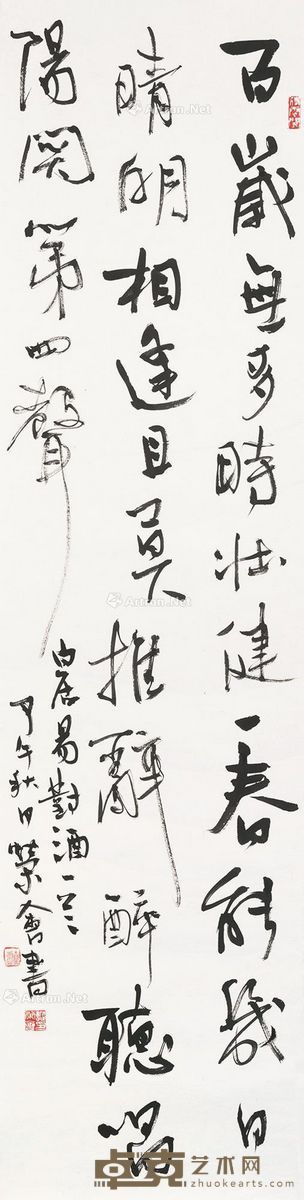 百歲無多時壯健一春能幾日
晴明相逢且莫推辭醉聽唱
陽關第四聲
白居易對酒一
甲午秋日榮會書
Artron.Net
卓克艺术网
www.zhuokearts.com